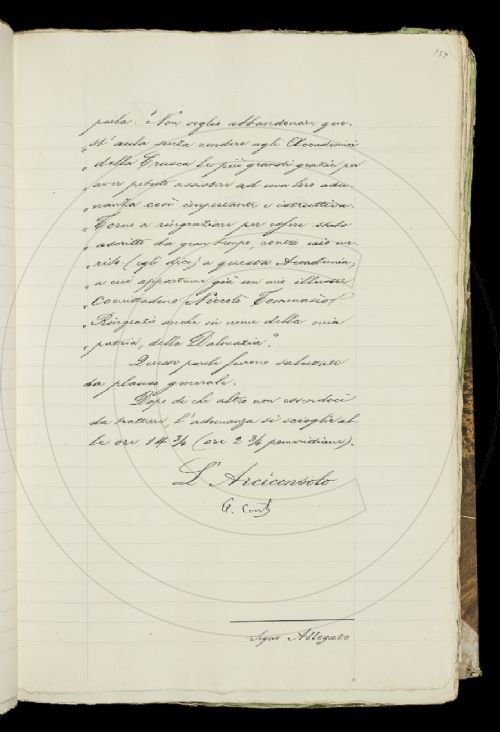 137
parla: "Non voglio abbandonare que-
" st'aula senza rendere agli Accademici
" della Crusca le più grandi grazie per
" aver potuto assistere ad una loro adu-
" nanza così importante e istruttiva.
" Torno a ringraziare per essere stato
" ascritto da gran tempo, contro mio me-
" rito (egli dice) a questa Accademia,
" a cui appartenne già un mio illustre
" Concittadino Niccolò Tommaseo.
" Ringrazio anche in nome della mia
" patria, della Dalmazia."
Queste parole furono salutate
da plauso generale.
Dopo di che altro non essendoci
da trattare, l'adunanza si scioglie al-
le ore 14 3/4 (ore 2 3/4 pomeridiane).
L'Arciconsolo
A. Conti
Segue Allegato